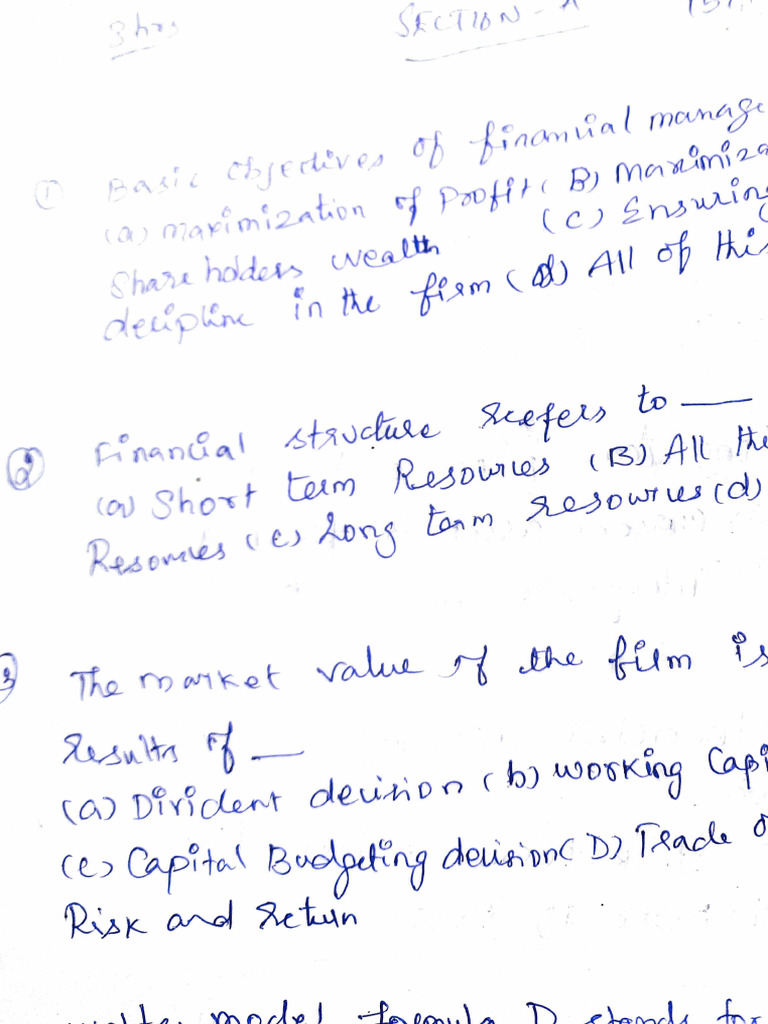 3 hrs SECTION - A (5
① Basic Objectives of financial manage
(a) maximization of Profit (B) Maximiza
Share holders wealth (C) Ensuring
decipline in the firm (d) All of this
② Financial structure refers to —
(a) Short term Resources (B) All the
Resources (c) Long term resources (d)
3 The market value of the firm is
results of —
(a) Divident decision (b) working Capi
(c) Capital Budgeting decision (D) Trade o
Risk and return
model formula D stands for